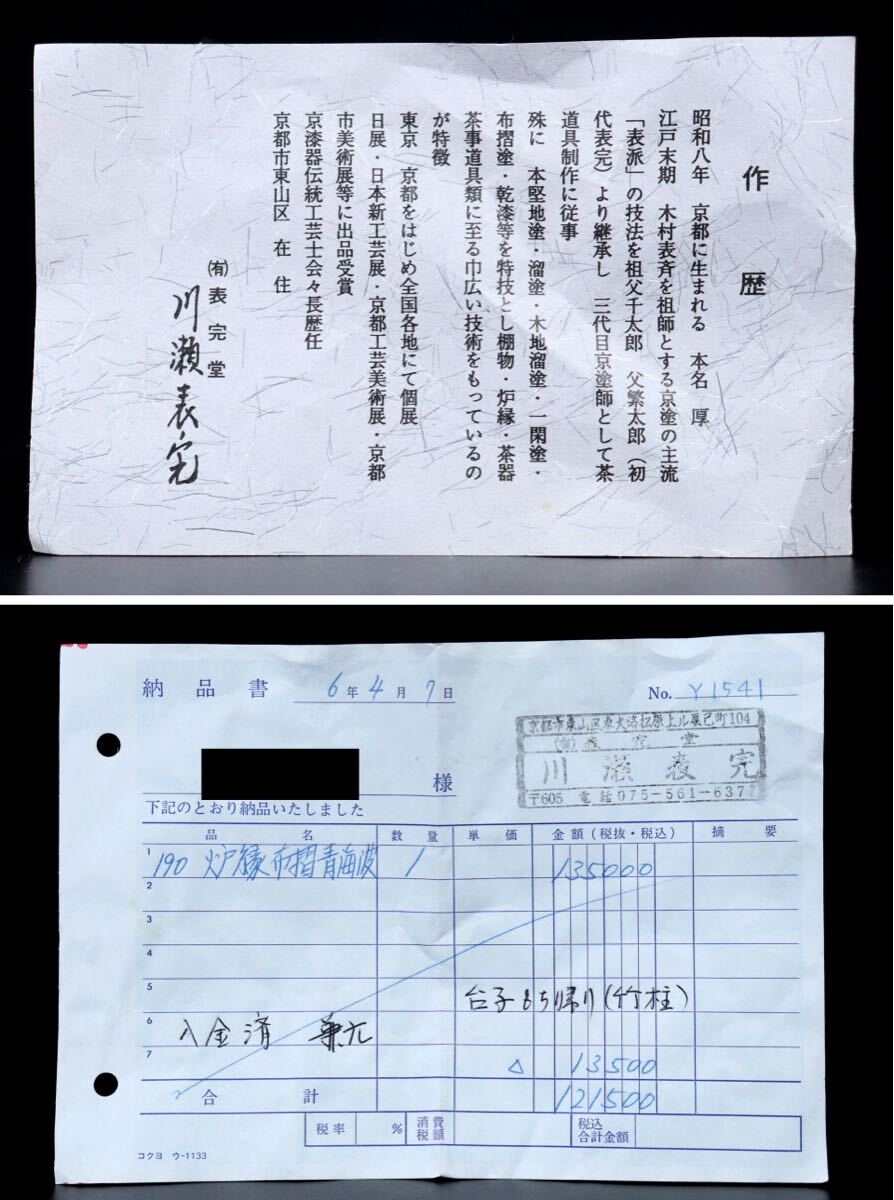 作歴
昭和八年 京都に生まれる 本名 厚
江戸末期 木村表斉を祖師とする京塗の主流
「表派」の技法を祖父千太郎 父繁太郎（初
代表完）より継承し 三代目京塗師として茶
道具制作に従事
殊に 本堅地塗・溜塗・木地溜塗・一閑塗・
布摺塗・乾漆等を特技とし棚物・炉縁・茶器
茶事道具類に至る巾広い技術をもっているの
が特徴
東京 京都をはじめ全国各地にて個展
日展・日本新工芸展・京都工芸美術展・京都
市美術展等に出品受賞
京漆器伝統工芸士会々長歴任
京都市東山区 在住
㈲表完堂
川瀬表完
納品書 6年4月7日 No. Y1541
京都市東山区東大路松原上ル辰巳町104
(有)表完堂
川瀬表完
〒605 電話075-561-6377
様
下記のとおり納品いたしました
品名 数量 単価 金額（税抜・税込） 摘要
1 190 炉縁布摺青海波 1 135000
2
3
4
5 台子もち帰り(竹柱)
6 入金済
7 △ 13500
合計 121500
税率 % 消費税額 税込合計金額
コクヨ ウ-1133